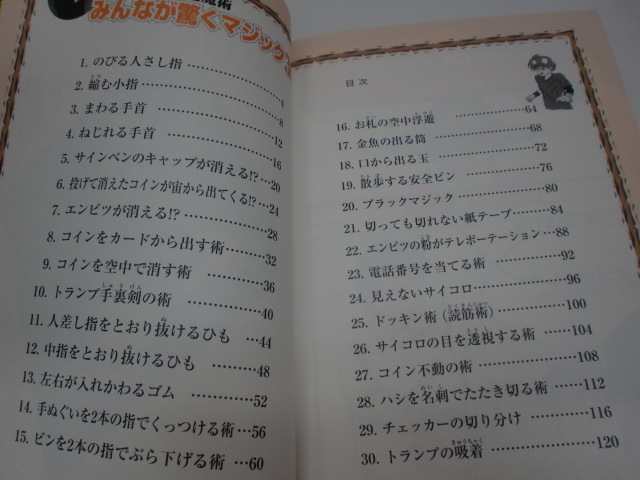 魔術
みんなが驚くマジック
1. のびる人さし指 ……………… 4
2. 縮む小指 ……………… 8
3. まわる手首 ……………… 12
4. ねじれる手首 ……………… 16
5. サインペンのキャップが消える!? …20
6. 投げて消えたコインが宙から出てくる!? …24
7. エンピツが消える!? ……………28
8. コインをカードから出す術 ……32
9. コインを空中で消す術 ………36
10. トランプ手裏剣の術 …………40
11. 人差し指をとおり抜けるひも …44
12. 中指をとおり抜けるひも ……48
13. 左右が入れかわるゴム ………52
14. 手ぬぐいを2本の指でくっつける術 …56
15. ビンを2本の指でぶら下げる術 …60
目次
16. お札の空中浮遊 ……………64
17. 金魚の出る筒 ……………68
18. 口から出る玉 ……………72
19. 散歩する安全ピン …………76
20. ブラックマジック …………80
21. 切っても切れない紙テープ ……84
22. エンピツの粉がテレポーテーション …88
23. 電話番号を当てる術 …………92
24. 見えないサイコロ ……………96
25. ドッキン術(読筋術) …………100
26. サイコロの目を透視する術 ……104
27. コイン不動の術 ……………108
28. ハシを名刺でたたき切る術 ……112
29. チェッカーの切り分け …………116
30. トランプの吸着 ……………120